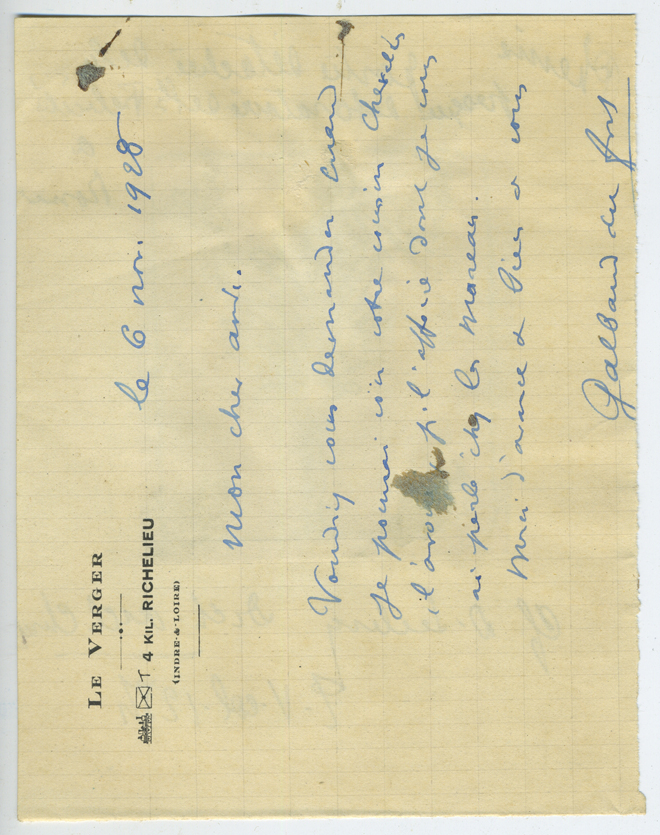 LE VERGER
4 KIL. RICHELIEU
(INDRE-&-LOIRE)
le 6 nov. 1928
Mon cher ami.
Voudriez vous demander quand
je pourrai voir votre cousin
il s'il l'affaire dont je vous
ai parlé chez les Moreau.
Merci d'avance & bien à vous
Galbaud du fort